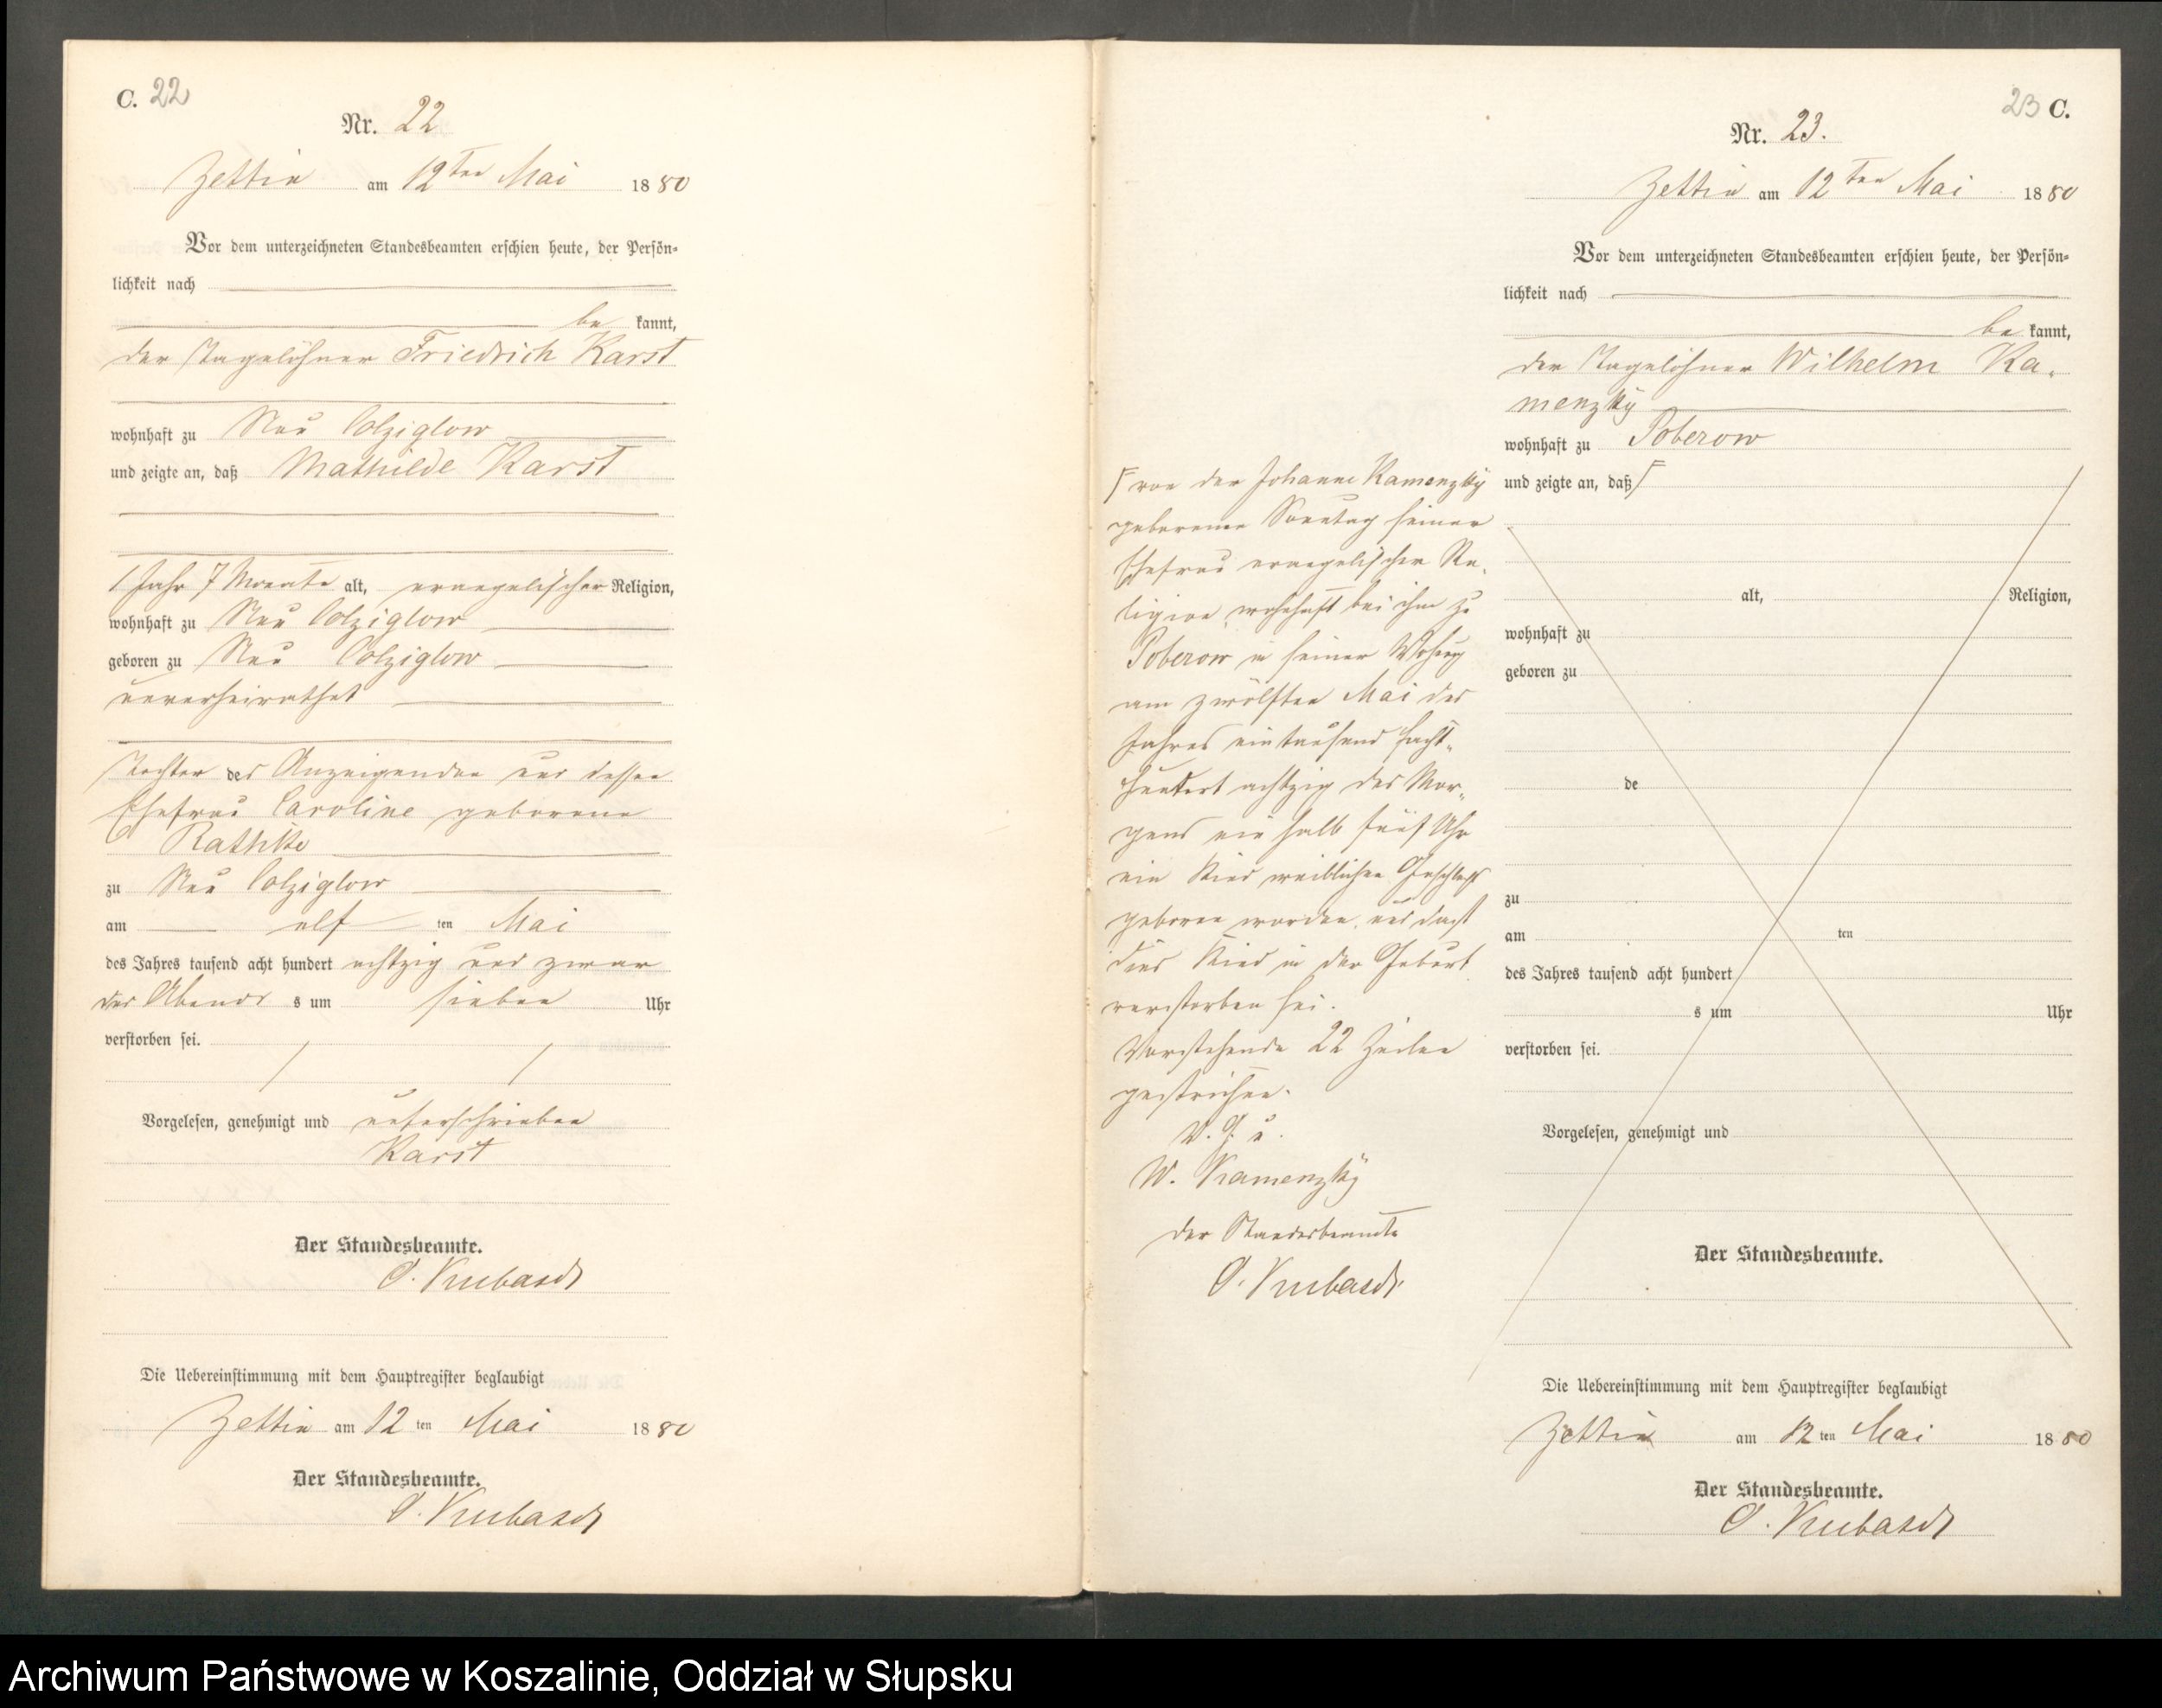 C. 22
Nr. 22
Zettin am 12ten Mai 1880
Vor dem unterzeichneten Standesbeamten erschien heute, der Persön-
lichkeit nach
be kannt,
der Tagelöhner Friedrich Karst
wohnhaft zu Neu Colziglow
und zeigte an, daß Mathilde Karst
1 Jahr 7 Monate alt, evangelischer Religion,
wohnhaft zu Neu Colziglow
geboren zu Neu Colziglow
unverheirathet
Tochter des Anzeigenden und dessen
Ehefrau Caroline geborene
Rathke
zu Neu Colziglow
am elf ten Mai
des Jahres tausend acht hundert achtzig und zwar
des Abends s um sieben Uhr
verstorben sei.
Vorgelesen, genehmigt und unterschrieben
Karst
Der Standesbeamte.
Die Uebereinstimmung mit dem Hauptregister beglaubigt
Zettin am 12 ten Mai 1880
Der Standesbeamte.
23 C.
Nr. 23.
Zettin am 12ten Mai 1880
Vor dem unterzeichneten Standesbeamten erschien heute, der Persön-
lichkeit nach
be kannt,
der Tagelöhner Wilhelm Ka-
menzky
wohnhaft zu Poberow
und zeigte an, daß
alt, Religion,
wohnhaft zu
geboren zu
de
zu
am ten
des Jahres tausend acht hundert
s um Uhr
verstorben sei.
Vorgelesen, genehmigt und
Der Standesbeamte.
von der Johanne Kamenzky
geborenen Sonntag seiner
Ehefrau evangelischer Re-
ligion, wohnhaft bei ihm zu
Poberow in seiner Wohnung
am zwölften Mai des
Jahres eintausend acht-
hundert achtzig des Mor-
gens ein halb fünf Uhr
ein Kind weiblichen Geschlechts
geboren worden, und daß
dies Kind in der Geburt
verstorben sei.
Vorstehende 22 Zeilen
gestrichen.
V. G. u.
W. Kamenzky
Der Standesbeamte
Die Uebereinstimmung mit dem Hauptregister beglaubigt
Zettin am 12 ten Mai 1880
Der Standesbeamte.
Archiwum Państwowe w Koszalinie, Oddział w Słupsku